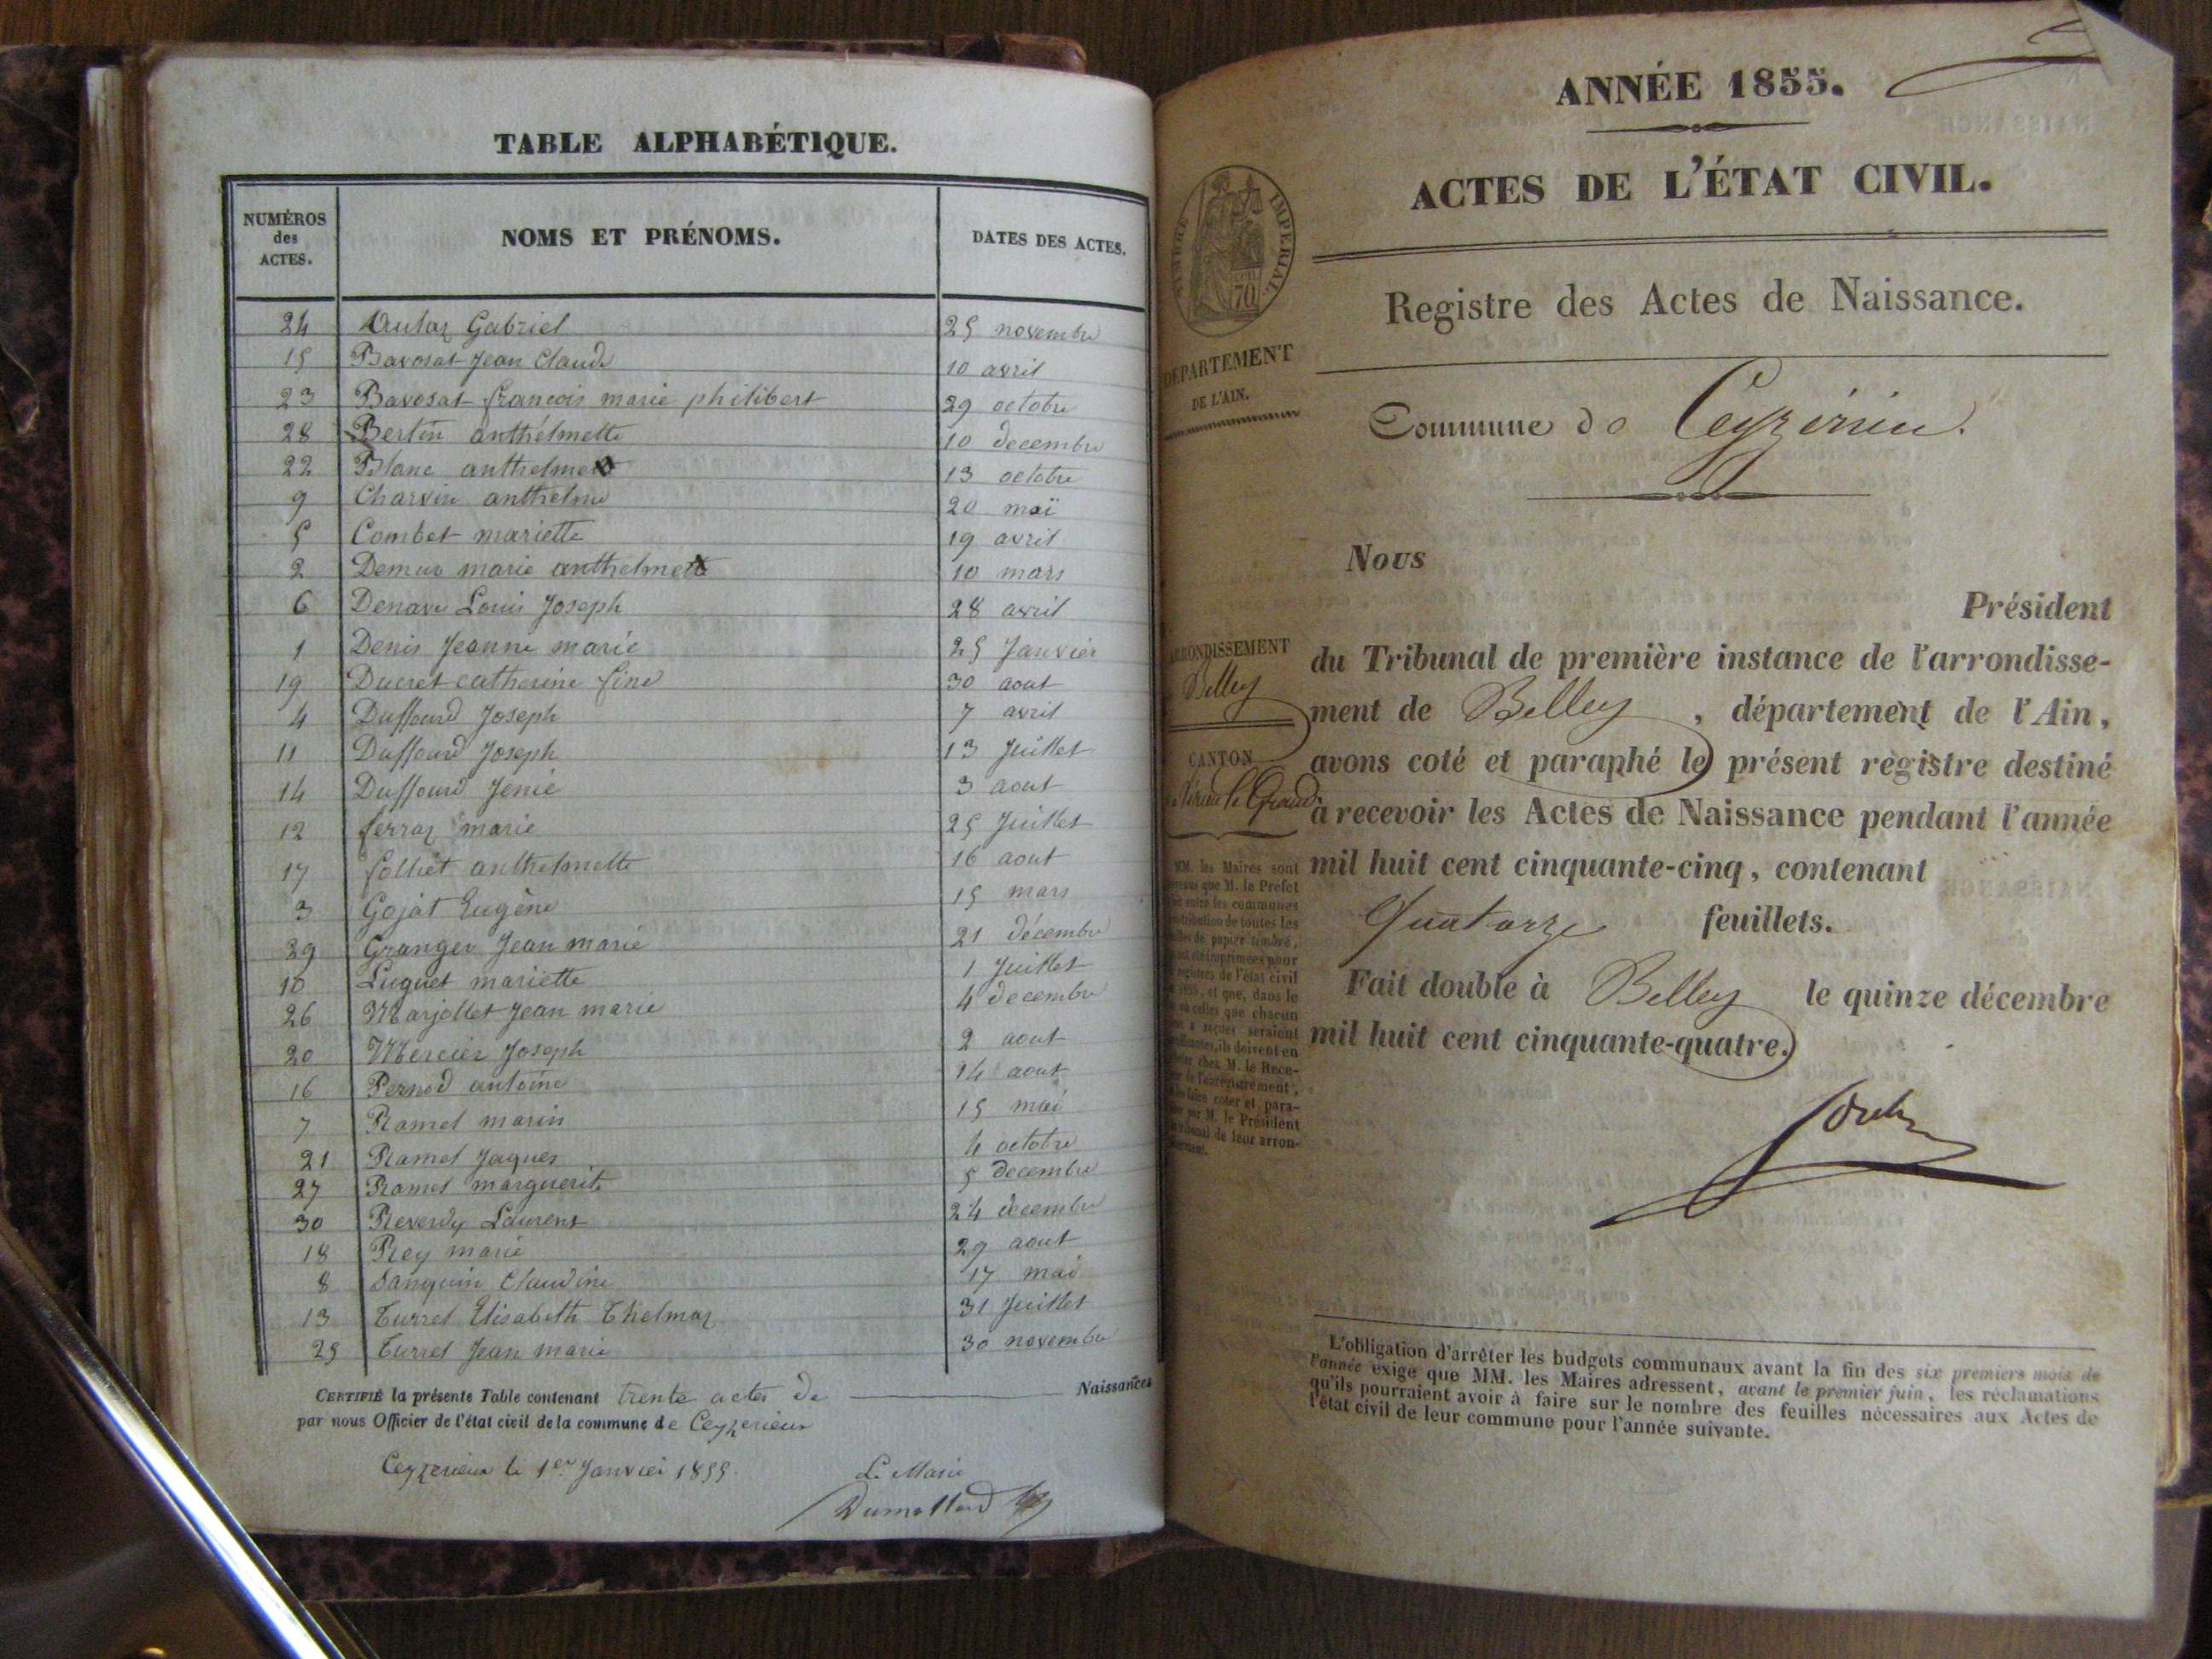 TABLE ALPHABÉTIQUE.
NUMÉROS des ACTES. NOMS ET PRÉNOMS. DATES DES ACTES.
24 Gabriel 25 novembre
15 Bavosat Jean Claude 10 avril
23 Bavosat francois marie philibert 29 octobre
28 Bertin anthelmette 10 decembre
22 Blanc anthelme 13 octobre
9 Charvin anthelme 20 mai
5 Combet mariette 19 avril
2 Demur marie anthelmet 10 mars
6 Denave Louis Joseph 28 avril
1 Denis Jeanne marie 25 Janvier
19 Ducret catherine fine 30 aout
4 Duffourd Joseph 7 avril
11 Duffourd Joseph 13 Juillet
14 Duffourd Jenie 3 aout
12 ferraz marie 25 Juillet
17 folliet anthelmette 16 aout
3 Gojat Eugène 15 mars
29 Granger Jean marie 21 décembre
10 Luquet mariette 1 Juillet
26 Marjollet Jean marie 4 decembre
20 Mercier Joseph 2 aout
16 Pernod antoine 14 aout
7 Ramel marin 15 mai
21 Ramel Jaques 4 octobre
27 Ramel marguerite 5 decembre
30 Reverdy Laurent 24 decembre
18 Rey marie 29 aout
8 Sanquin Claudine 17 mai
13 Turrel Elisabeth Thelmaz 31 Juillet
25 Turrel Jean marie 30 novembre
CERTIFIÉ la présente Table contenant trente actes de Naissances
par nous Officier de l'état civil de la commune de Ceyzerieu
Ceyzerieu le 1er Janvier 1855
Le Maire
Dumollard
ANNÉE 1855.
ACTES DE L'ÉTAT CIVIL.
TIMBRE IMPERIAL
70
DÉPARTEMENT
DE L'AIN.
Registre des Actes de Naissance.
Commune de Ceyzérieu.
Nous
Président
ARRONDISSEMENT
Belley
CANTON
Virieu le Grand
du Tribunal de première instance de l'arrondisse-
ment de Belley, département de l'Ain,
avons coté et paraphé le présent registre destiné
à recevoir les Actes de Naissance pendant l'année
mil huit cent cinquante-cinq, contenant
Quatorze feuillets.
Fait double à Belley le quinze décembre
mil huit cent cinquante-quatre.
MM. les Maires sont
que M. le Préfet
entre les communes
de toutes les
de papier timbré,
imprimées pour
registres de l'état civil
1855, et que, dans le
celles que chacun
reçues seraient
ils doivent en
chez M. le Rece-
de l'enregistrement,
faire coter et para-
par M. le Président
tribunal de leur arron-
L'obligation d'arrêter les budgets communaux avant la fin des six premiers mois de
l'année exige que MM. les Maires adressent, avant le premier juin, les réclamations
qu'ils pourraient avoir à faire sur le nombre des feuilles nécessaires aux Actes de
l'état civil de leur commune pour l'année suivante.